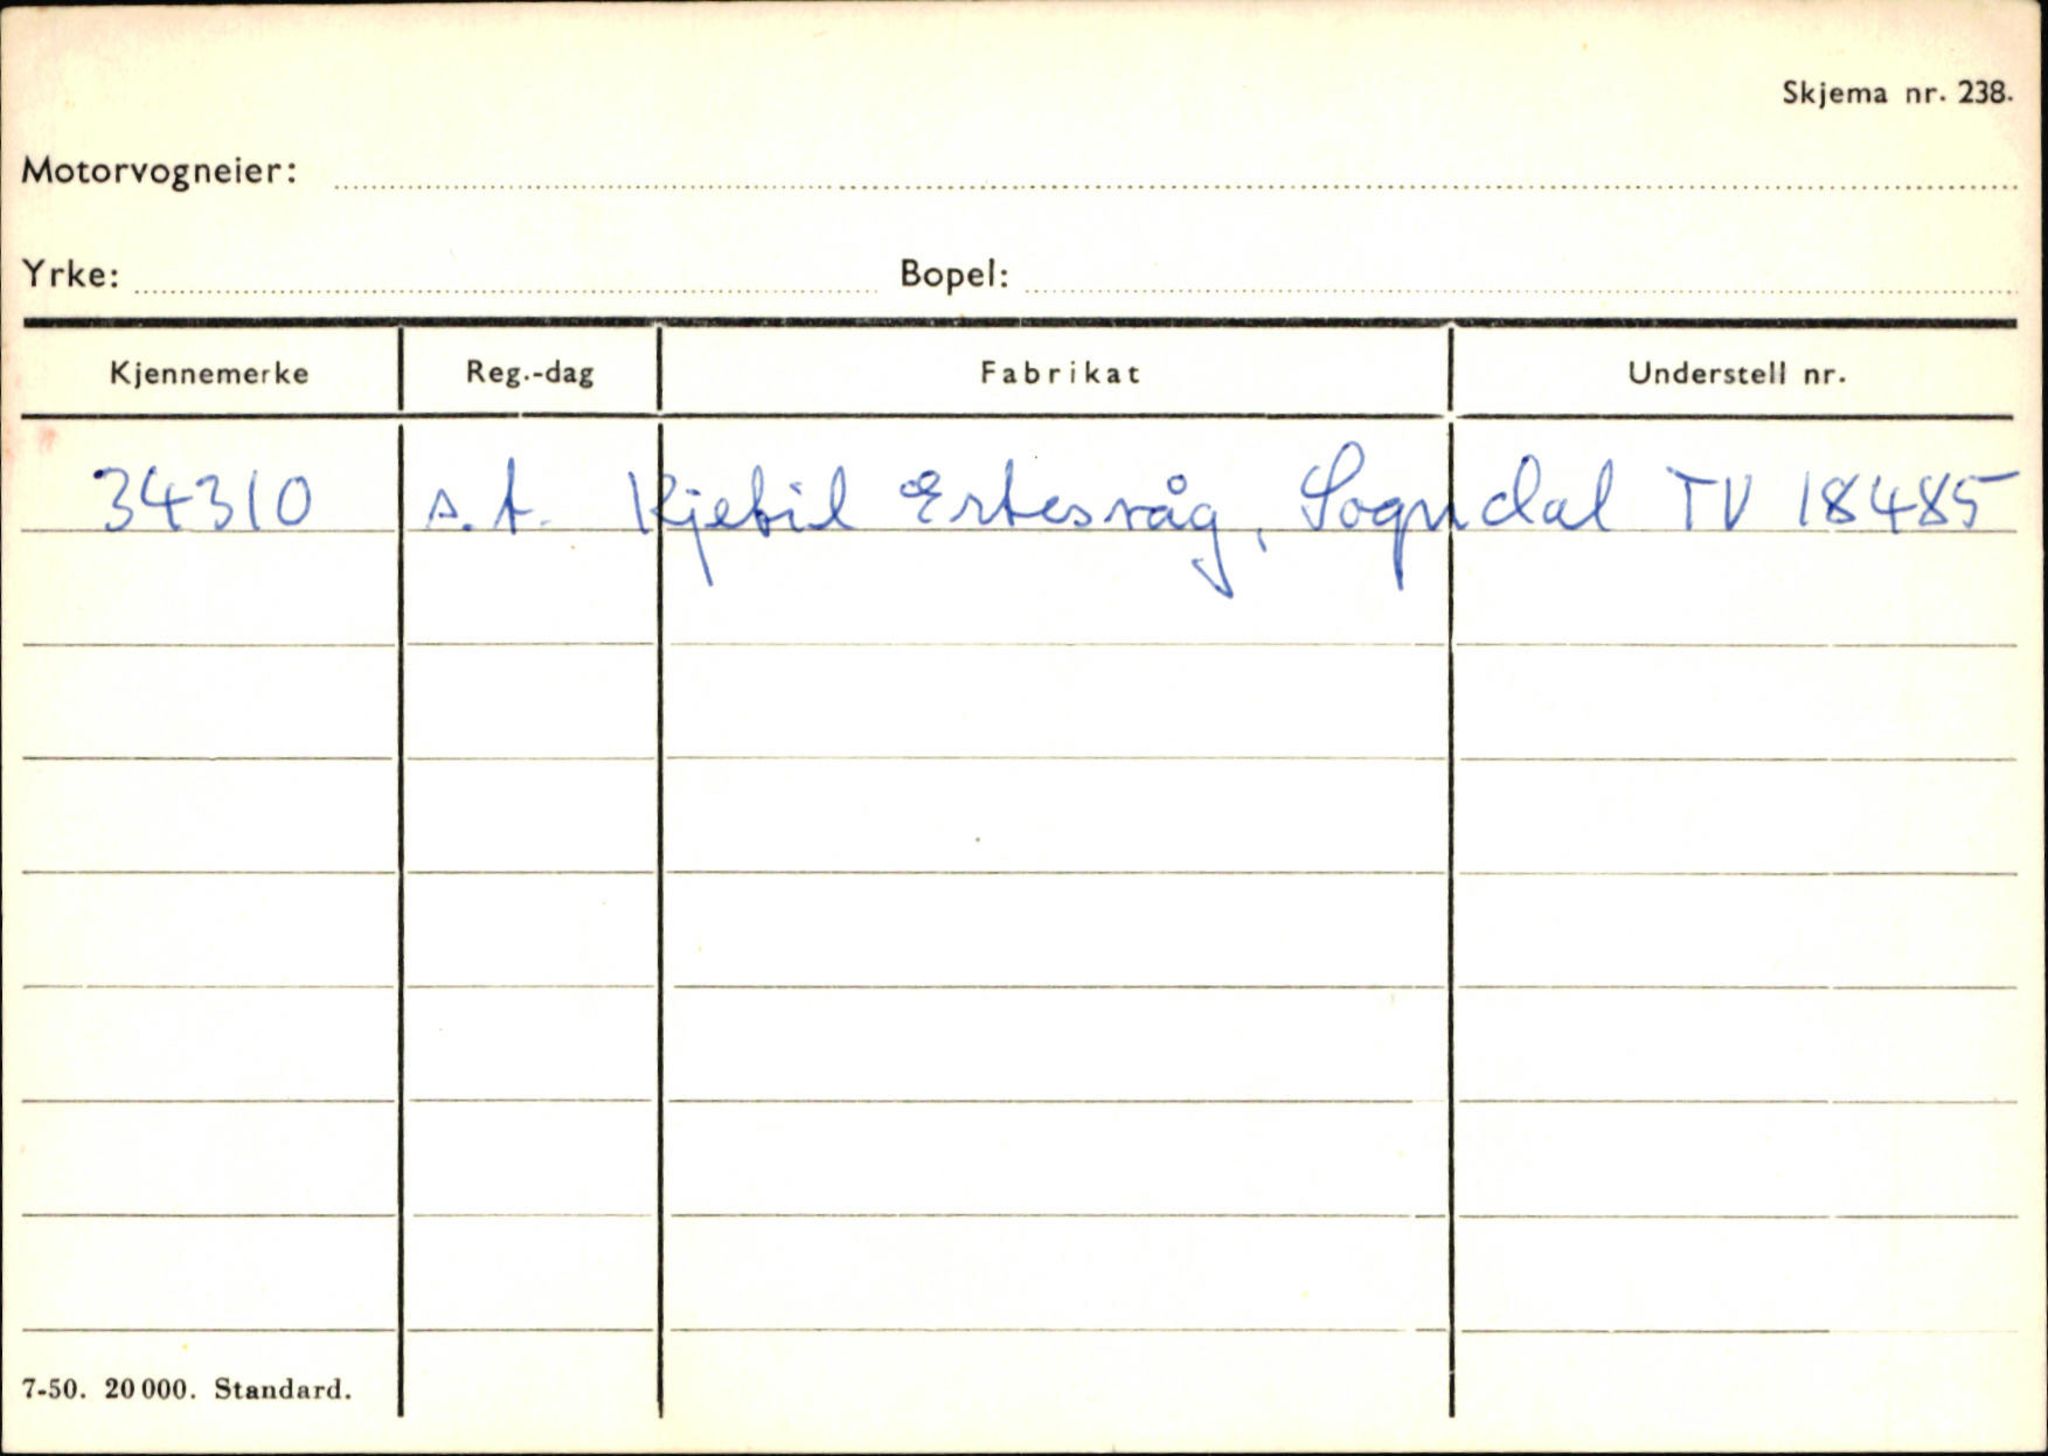 Skjema nr. 238.
Motorvogneier:
Yrke: Bopel:
Kjennemerke Reg.-dag Fabrikat Understell nr.
34310 s.t. Kjetil Ertesvåg, Sogndal TV 18485
7-50. 20 000. Standard.